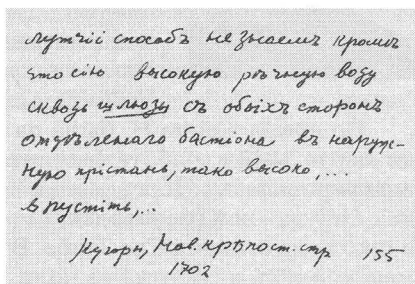 лутчіи способъ не знаемъ кромѣ
что сію высокую рѣчную воду
сквозь шлюзы съ обоіхъ сторонъ
отдѣленаго бастіона въ наруж-
ную прістань, тако высоко,...
впустіть,...
Кугорн, Нов. крѣпост. стр 155
1702